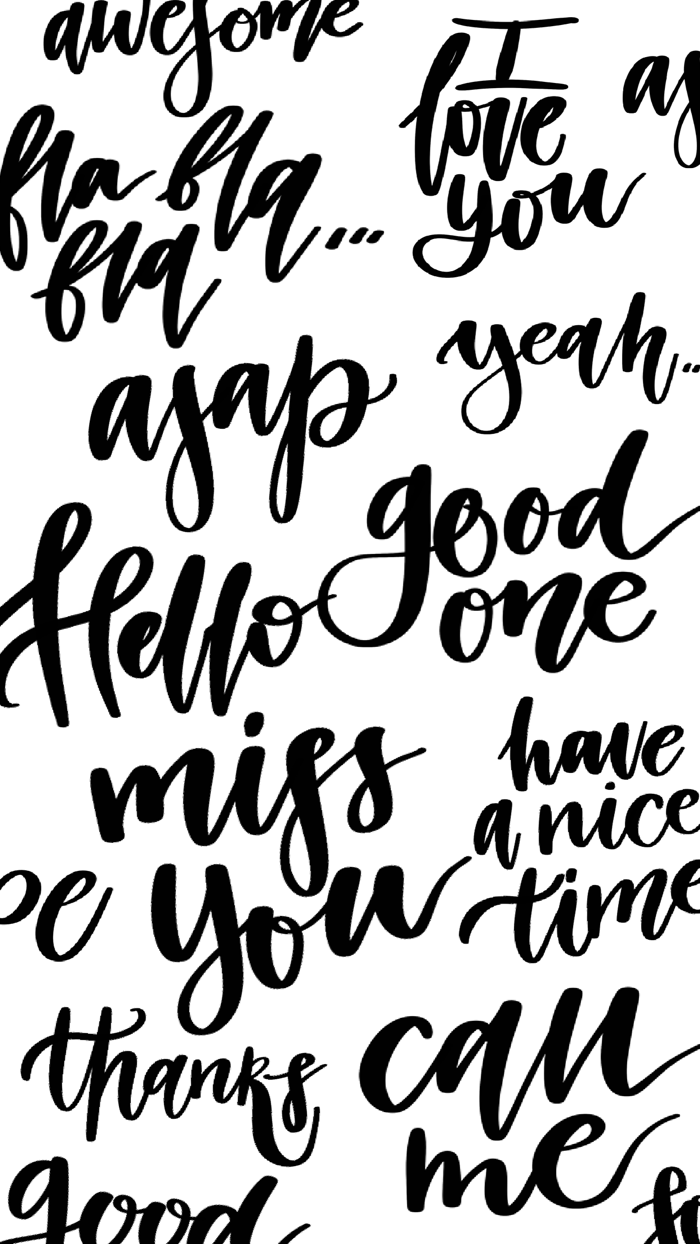 awesome
I
love
you
as
bla bla
bla...
yeah..
asap
good
one
Hello
miss
you
have
a nice
time
pe
thanks
call
me
good